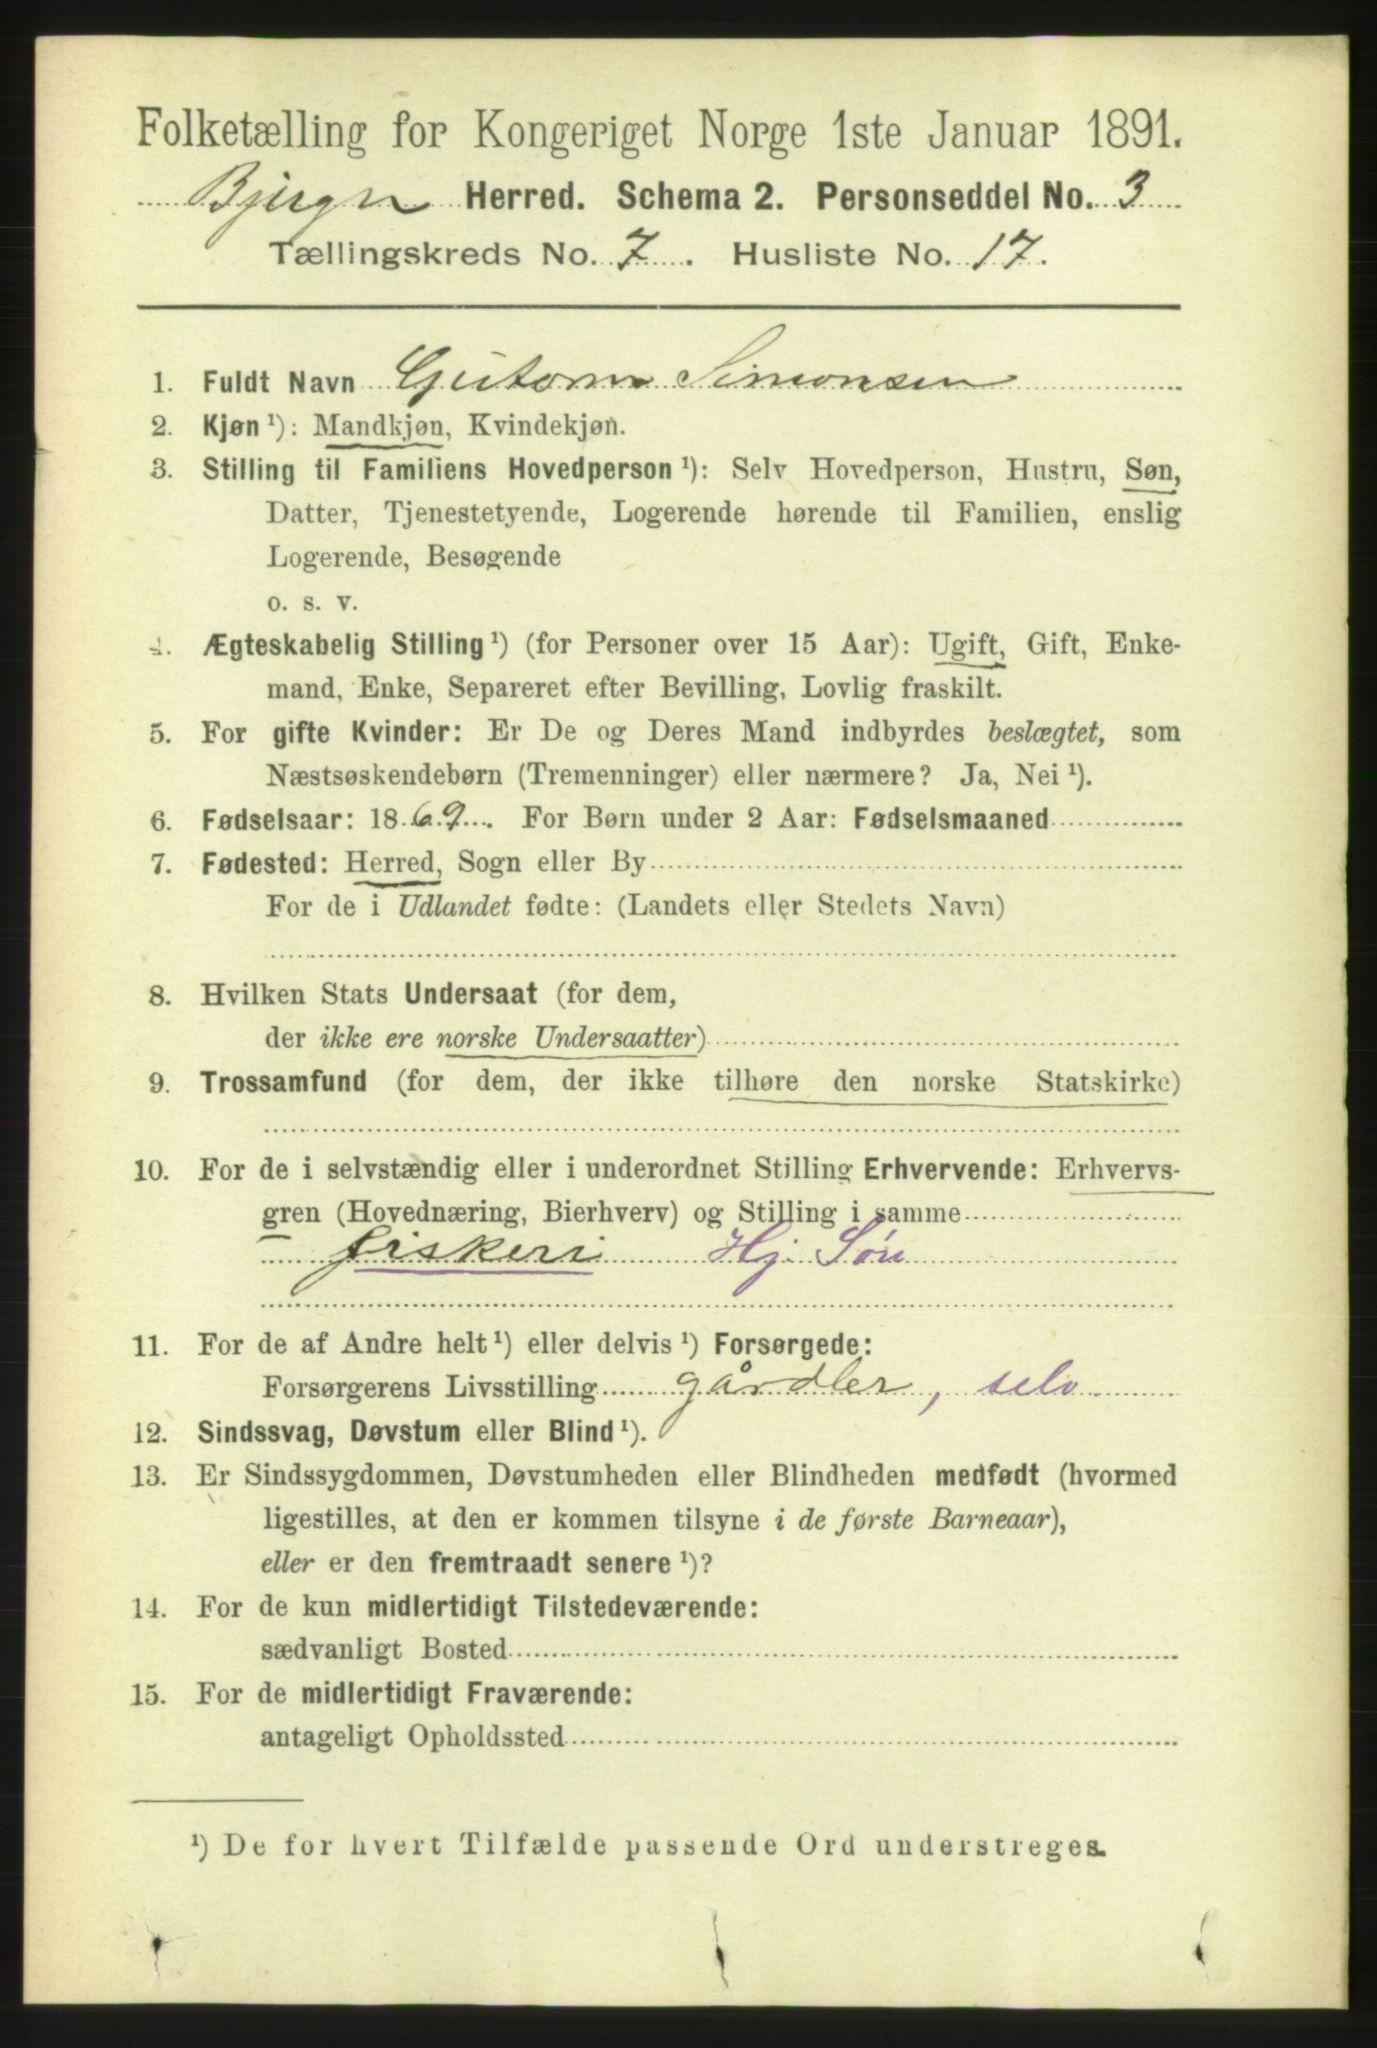 Folketælling for Kongeriget Norge 1ste Januar 1891.
Bjugn Herred. Schema 2. Personseddel No. 3
Tællingskreds No. 7. Husliste No. 17.
1. Fuldt Navn Gutorm Simonsen
2. Kjøn ¹): Mandkjøn, Kvindekjøn.
3. Stilling til Familiens Hovedperson ¹): Selv Hovedperson, Hustru, Søn,
Datter, Tjenestetyende, Logerende hørende til Familien, enslig
Logerende, Besøgende
o. s. v.
4. Ægteskabelig Stilling ¹) (for Personer over 15 Aar): Ugift, Gift, Enke-
mand, Enke, Separeret efter Bevilling, Lovlig fraskilt.
5. For gifte Kvinder: Er De og Deres Mand indbyrdes beslægtet, som
Næstsøskendebørn (Tremenninger) eller nærmere? Ja, Nei ¹).
6. Fødselsaar: 1869. For Børn under 2 Aar: Fødselsmaaned
7. Fødested: Herred, Sogn eller By
For de i Udlandet fødte: (Landets eller Stedets Navn)
8. Hvilken Stats Undersaat (for dem,
der ikke ere norske Undersaatter)
9. Trossamfund (for dem, der ikke tilhøre den norske Statskirke)
10. For de i selvstændig eller i underordnet Stilling Erhvervende: Erhvervs-
gren (Hovednæring, Bierhverv) og Stilling i samme
fiskeri Hj. Søn
11. For de af Andre helt ¹) eller delvis ¹) Forsørgede:
Forsørgerens Livsstilling gårdbr, selv
12. Sindssvag, Døvstum eller Blind ¹).
13. Er Sindssygdommen, Døvstumheden eller Blindheden medfødt (hvormed
ligestilles, at den er kommen tilsyne i de første Barneaar),
eller er den fremtraadt senere ¹)?
14. For de kun midlertidigt Tilstedeværende:
sædvanligt Bosted
15. For de midlertidigt Fraværende:
antageligt Opholdssted
¹) De for hvert Tilfælde passende Ord understreges.